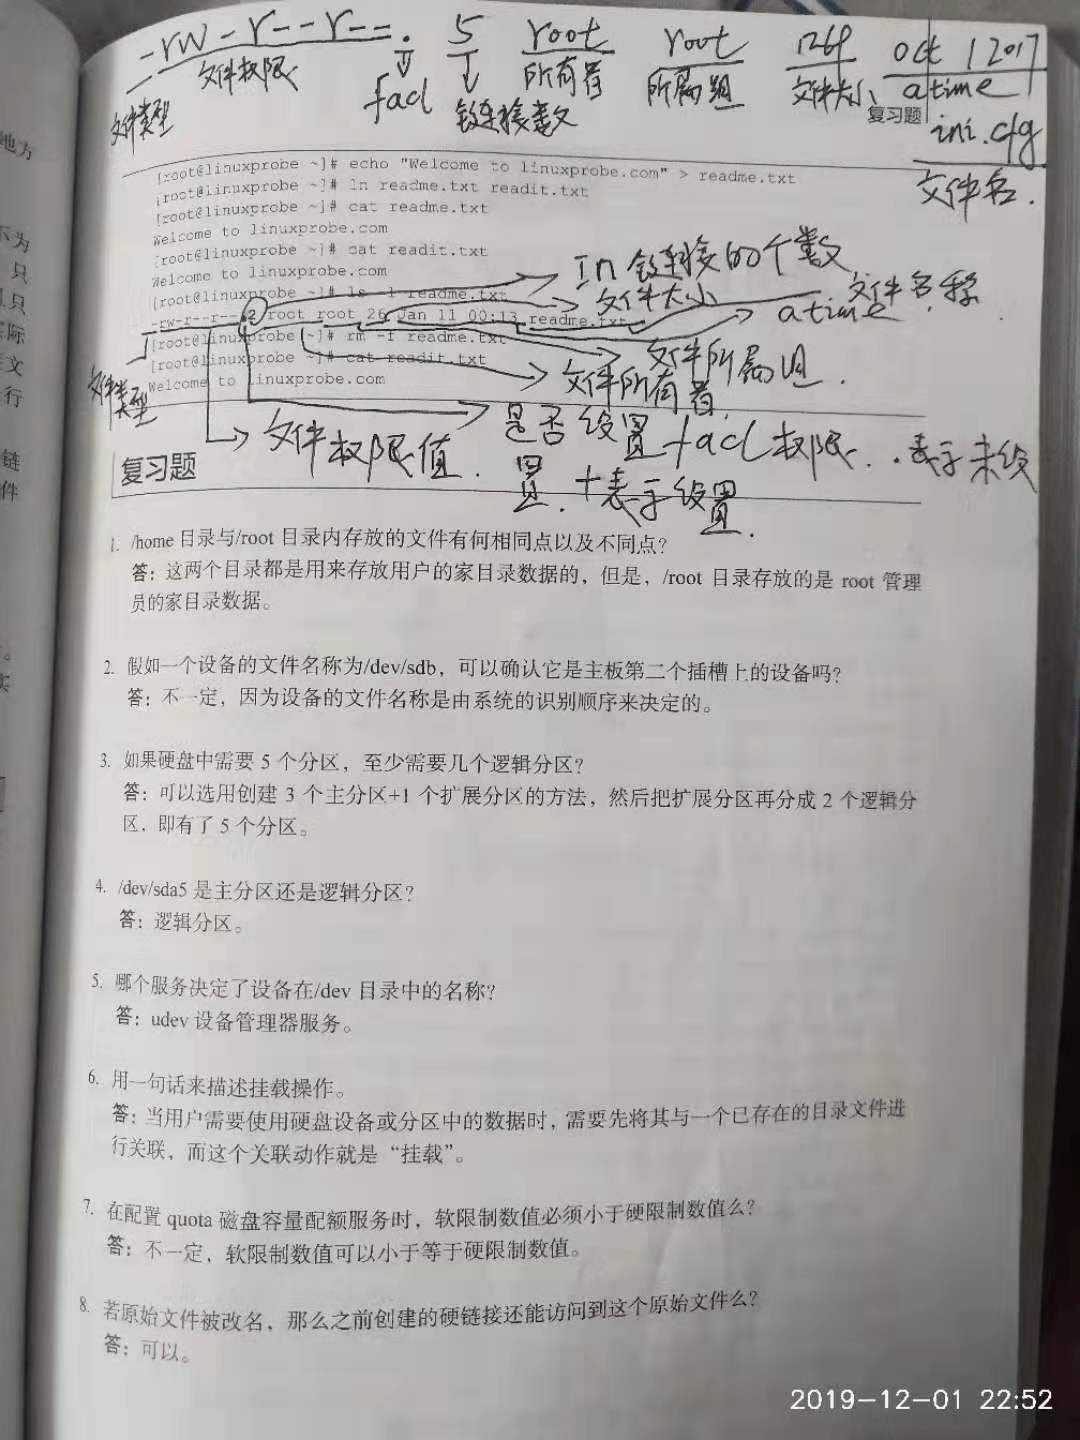 -rw-r--r-- . 5 root root 1269 oct 1 2017
文件权限 所有者 所属组 文件大小 atime
文件类型 facl 链连接数 复习题 ini.cfg
文件名.
[root@linuxprobe ~]# echo "Welcome to linuxprobe.com" > readme.txt
[root@linuxprobe ~]# ln readme.txt readit.txt
[root@linuxprobe ~]# cat readme.txt
Welcome to linuxprobe.com
[root@linuxprobe ~]# cat readit.txt
Welcome to linuxprobe.com
In 链连接的个数
[root@linuxprobe ~]# ls -l readme.txt
文件大小 文件名称.
-rw-r--r-- 2 root root 26 Jan 11 00:13 readme.txt
atime
[root@linuxprobe ~]# rm -f readme.txt
文件所属组.
[root@linuxprobe ~]# cat readit.txt
文件所有者.
Welcome to linuxprobe.com
文件类型
文件权限值. 是否设置facl权限. .表示未设
置. +表示设置.
复习题
1. /home 目录与/root 目录内存放的文件有何相同点以及不同点?
答：这两个目录都是用来存放用户的家目录数据的，但是，/root 目录存放的是 root 管理
员的家目录数据。
2. 假如一个设备的文件名称为/dev/sdb，可以确认它是主板第二个插槽上的设备吗?
答：不一定，因为设备的文件名称是由系统的识别顺序来决定的。
3. 如果硬盘中需要 5 个分区，至少需要几个逻辑分区?
答：可以选用创建 3 个主分区+1 个扩展分区的方法，然后把扩展分区再分成 2 个逻辑分
区，即有了 5 个分区。
4. /dev/sda5 是主分区还是逻辑分区?
答：逻辑分区。
5. 哪个服务决定了设备在/dev 目录中的名称?
答：udev 设备管理器服务。
6. 用一句话来描述挂载操作。
答：当用户需要使用硬盘设备或分区中的数据时，需要先将其与一个已存在的目录文件进
行关联，而这个关联动作就是“挂载”。
7. 在配置 quota 磁盘容量配额服务时，软限制数值必须小于硬限制数值么?
答：不一定，软限制数值可以小于等于硬限制数值。
8. 若原始文件被改名，那么之前创建的硬链接还能访问到这个原始文件么?
答：可以。
2019-12-01 22:52